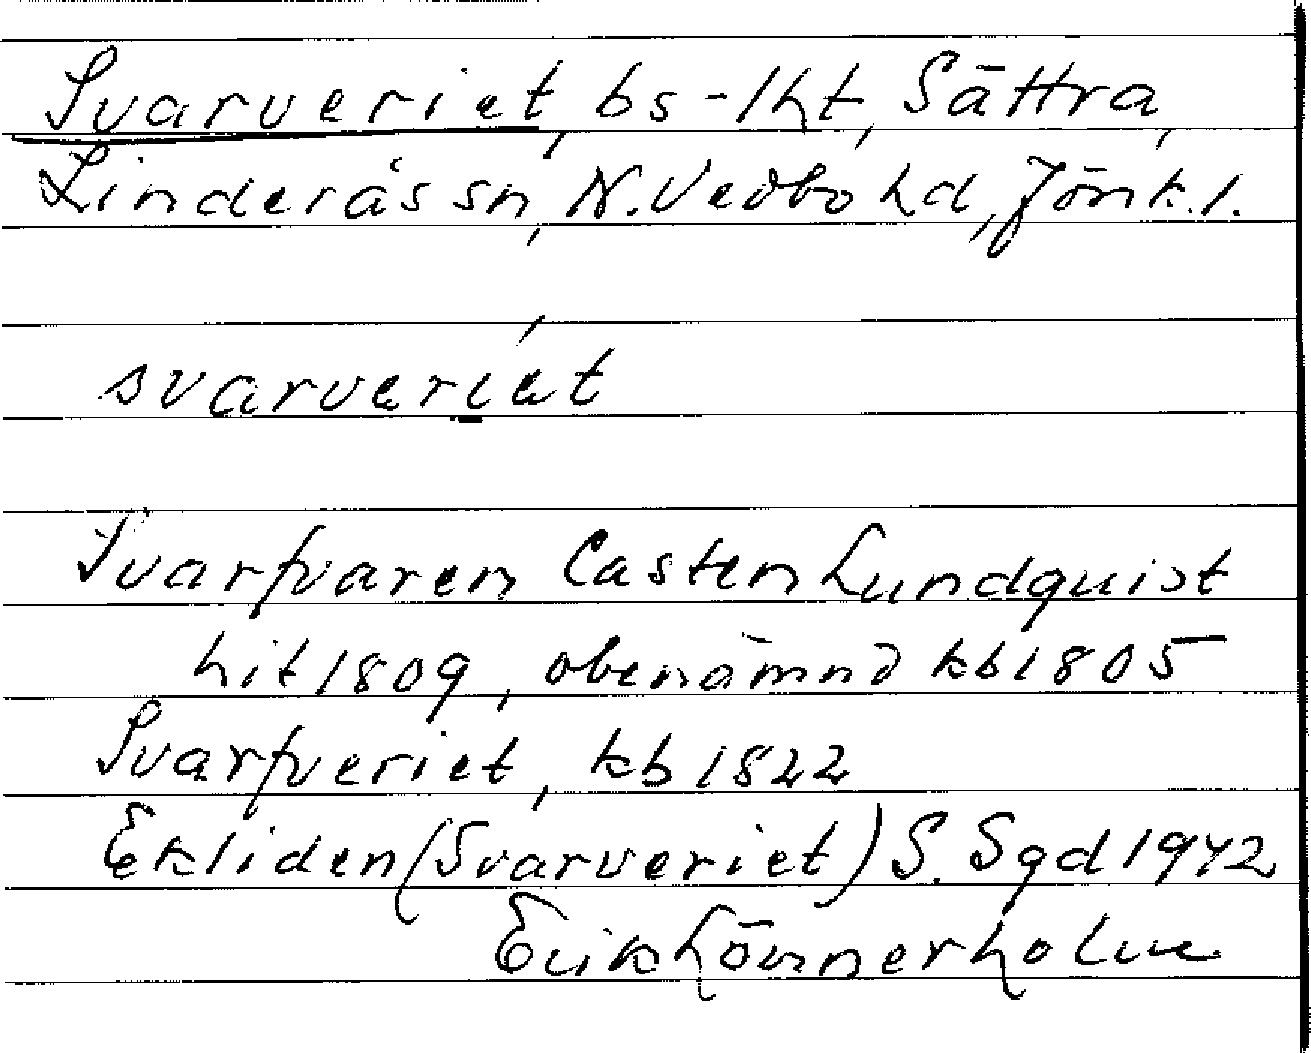 Svarveriet, bs-lht, Sättra,
Linderås sn, N. Vedbo hd, Jönk. l.
svarveriet
Svarfvaren Casten Lundquist
hit 1809, obenämnd kb 1805
Svarfveriet, kb 1822
Ekliden (Svarveriet) S. Sgd 1942
Erik Lönnerholm